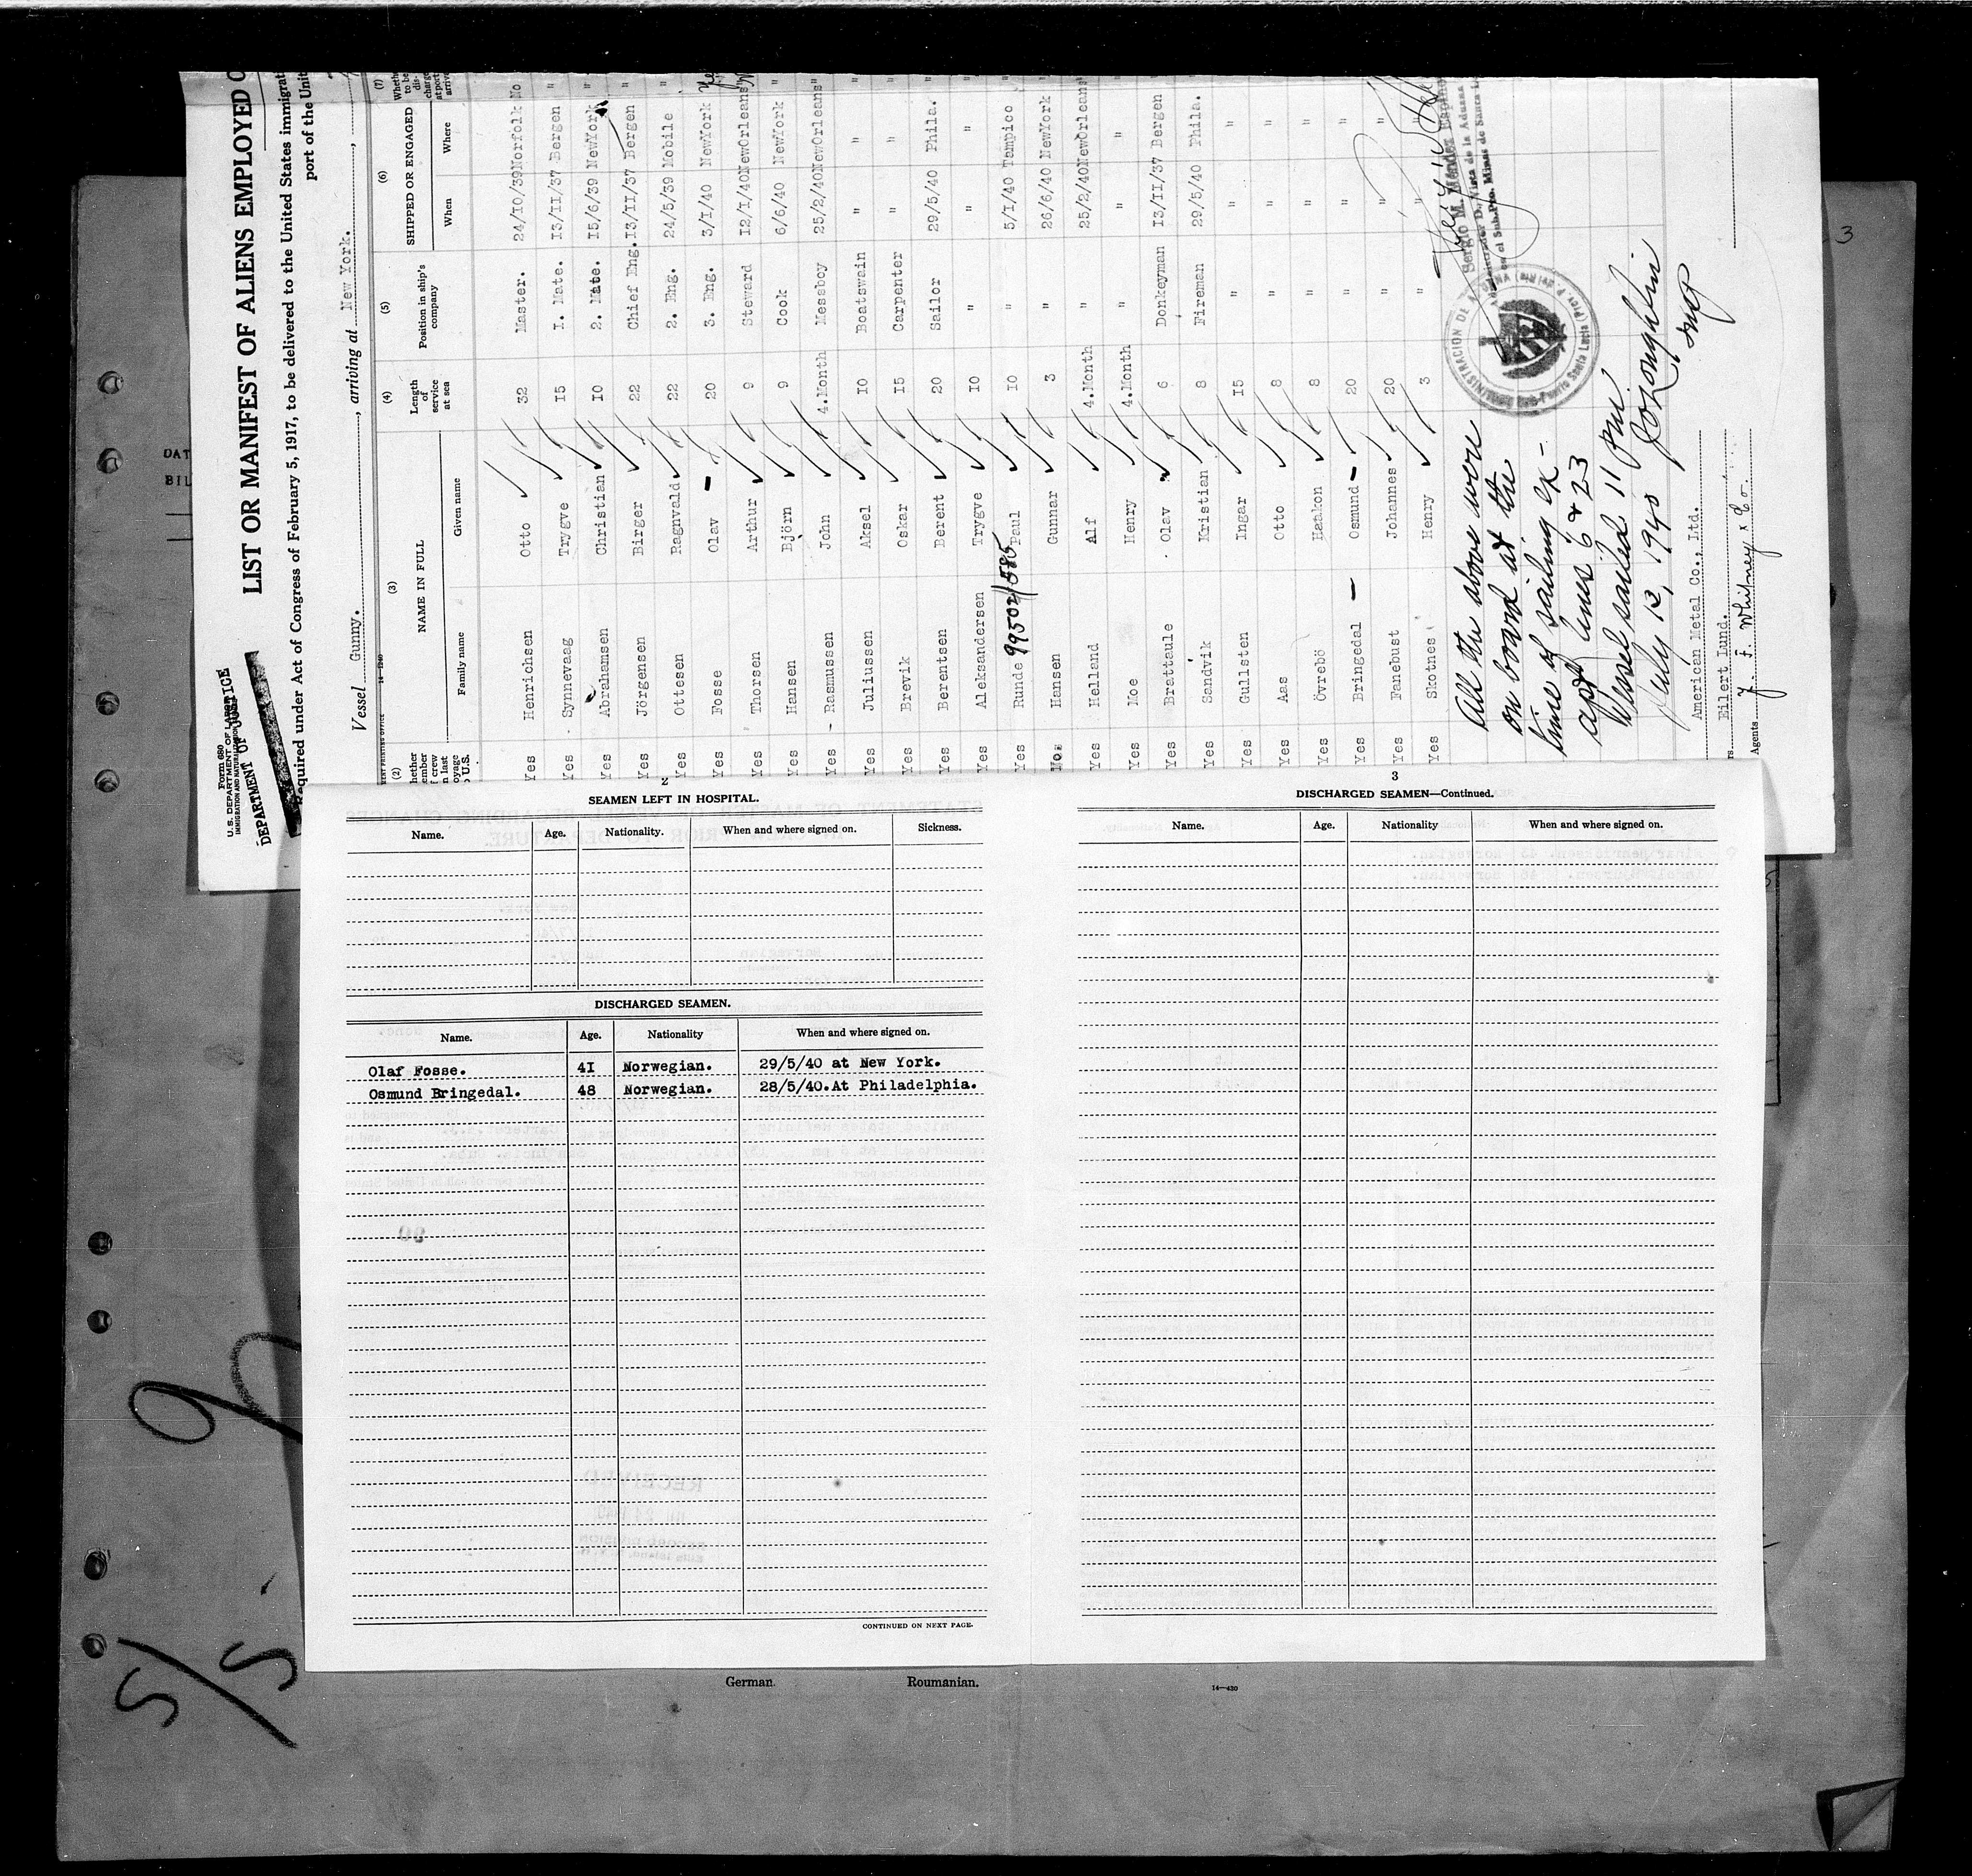 Form 680
U. S. DEPARTMENT OF LABOR
IMMIGRATION AND NATURALIZATION SERVICE
DEPARTMENT OF JUSTICE
LIST OR MANIFEST OF ALIENS EMPLOYED O
Required under Act of Congress of February 5, 1917, to be delivered to the United States immigrat
port of the Unit
Vessel Gunny. , arriving at New York. ,
(2) (3) (4) (5) (6) (7)
NAME IN FULL Length of service at sea Position in ship's company SHIPPED OR ENGAGED
Family name Given name When Where
Yes Henrichsen Otto 32 Master. 24/10/39 Norfolk No
Yes Synnevaag Trygve 15 I. Mate. 13/11/37 Bergen "
Yes Abrahamsen Christian 10 2. Mate. 15/6/39 NewYork "
Yes Jörgensen Birger 22 Chief Eng. 13/11/37 Bergen "
Yes Ottesen Ragnvald 22 2. Eng. 24/5/39 Mobile "
Yes Fosse Olav – 20 3. Eng. 3/1/40 NewYork
Yes Thorsen Arthur 9 Steward 12/1/40 NewOrleans "
Yes Hansen Björn 9 Cook 6/6/40 NewYork "
Yes Rasmussen John 4.Month Messboy 25/2/40 NewOrleans "
Yes Juliussen Aksel 10 Boatswain " " "
Yes Brevik Oskar 15 Carpenter " " "
Yes Berentsen Berent 20 Sailor 29/5/40 Phila. "
Yes Aleksandersen Trygve 10 " " " "
Yes Runde 99502/585 Paul 10 " 5/1/40 Tampico "
No. Hansen Gunnar 3 " 26/6/40 NewYork "
Yes Helland Alf 4.Month " 25/2/40 NewOrleans "
Yes Moe Henry 4.Month " " " "
Yes Brattaule Olav 6 Donkeyman 13/11/37 Bergen "
Yes Sandvik Kristian 8 Fireman 29/5/40 Phila. "
Yes Gullsten Ingar 15 " " " "
Yes Aas Otto 8 " " " "
Yes Övrebö Haakon 8 " " " "
Yes Bringedal – Osmund – 20 " " " "
Yes Fanebust Johannes 20 " " " "
Yes Skotnes Henry 3 " " " "
All the above were
on board at the
time of sailing ex-
cept lines 6 & 23
Vessel sailed 11 P.M.
July 12, 1940
Sergio M. Mendez
Administrador D. Vista de la Aduana
en el Sub-Pto. Minas de Santa L
American Metal Co., Ltd.
Eilert Lund.
Agents J. F. Whitney & Co.
3
2
SEAMEN LEFT IN HOSPITAL.
Name. Age. Nationality. When and where signed on. Sickness.
DISCHARGED SEAMEN.
Name. Age. Nationality When and where signed on.
Olaf Fosse. 41 Norwegian. 29/5/40 at New York.
Osmund Bringedal. 48 Norwegian. 28/5/40.At Philadelphia.
CONTINUED ON NEXT PAGE.
3
DISCHARGED SEAMEN—Continued.
Name. Age. Nationality When and where signed on.
German. Roumanian. 14—420
DAT
BIL